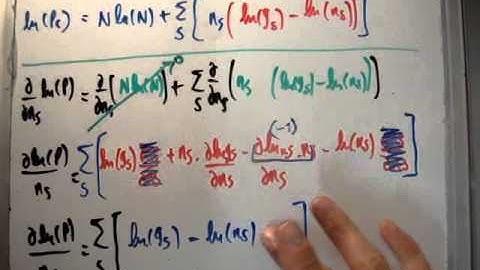 ln(P_s) = N ln(N) + Σ_s [ n_s ( ln(g_s) − ln(n_s) ) ]
∂/∂n_s ln(P) = ∂/∂n_s [N ln(N)] + Σ_s ∂/∂n_s ( n_s (ln(g_s) − ln(n_s)) )
0
(-1)
∂ln(P)/n_s = Σ_s [ ln(g_s) + n_s · ∂ln g_s/∂n_s − ∂ln n_s · n_s/∂n_s − ln(n_s) ]
∂ln(P)/∂n_s = Σ_s [ ln(g_s) − ln(n_s) ]